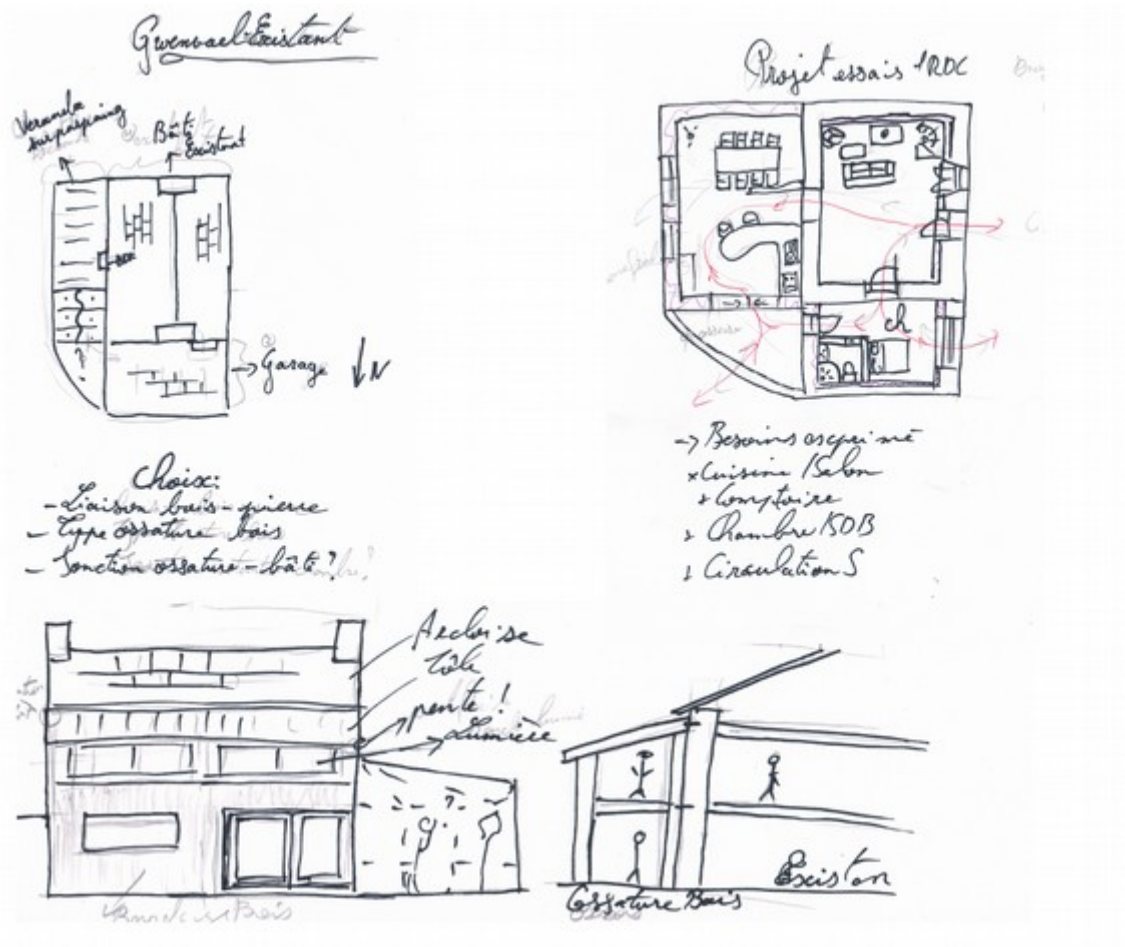 Gwenvael Existant
Veranda
Bâti
Existant
Garage
N
Choix:
- Liaison bois - pierre
- Type ossature bois
- Jonction ossature - bâti ?
Projet essais 1 RDC
ch
-> Besoins exprimé
x Cuisine / Salon
x Comptoire
x Chambre / SDB
x Circulation S
Ardoise
Tôle
pente !
Lumière
Existan
Ossature Bois